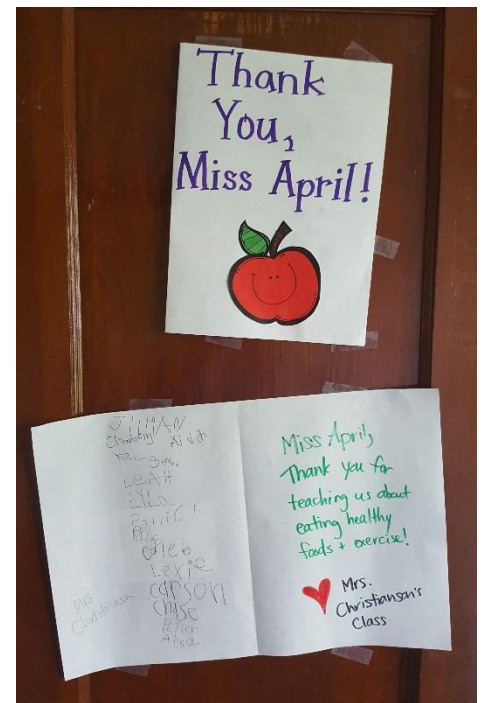 Thank
You,
Miss April!
JilliAN
Leah
Lyla
Patrick
caleb
Lexie
carson
chase
Mrs
Christianson
Miss April,
Thank you for
teaching us about
eating healthy
foods + exercise!
Mrs.
Christianson's
Class